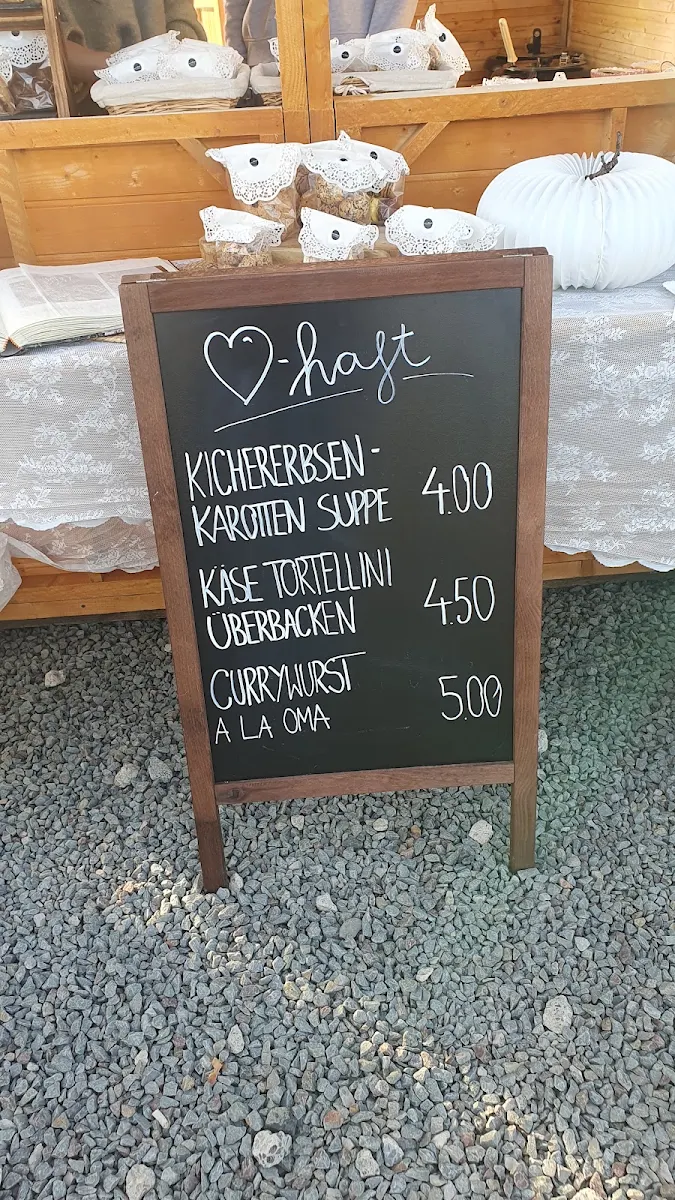 ♡-haft
KICHERERBSEN-
KAROTTEN SUPPE 4.00
KÄSE TORTELLINI
ÜBERBACKEN 4.50
CURRYWURST
A LA OMA 5.00